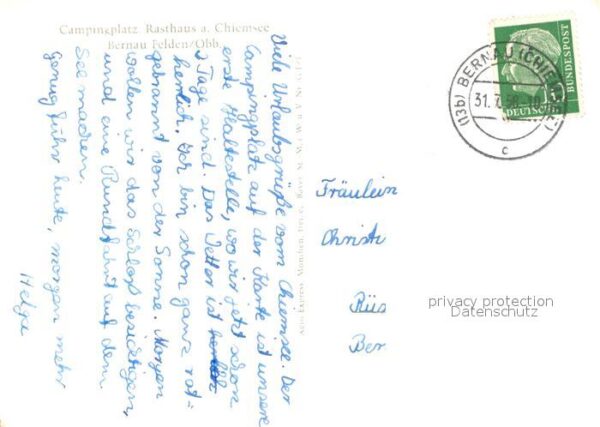 Campingplatz Rasthaus a. Chiemsee
Bernau Felden/Obb.
Viele Urlaubsgrüße vom Chiemsee. Der
Campingplatz auf der Karte ist unsere
erste Haltestelle, wo wir jetzt schon
2 Tage sind. Das Wetter ist
herrlich. Ich bin schon ganz rot-
gebrannt von der Sonne. Morgen
wollen wir das Schloß besichtigen,
und eine Rundfahrt auf dem
See machen.
Genug für heute, morgen mehr
Helga
Fräulein
Christi
Rüs
Ber
privacy protection
Datenschutz
(13b) BERNAU (CHIEMSEE)
31.7.58
c
DEUTSCHE
BUNDESPOST